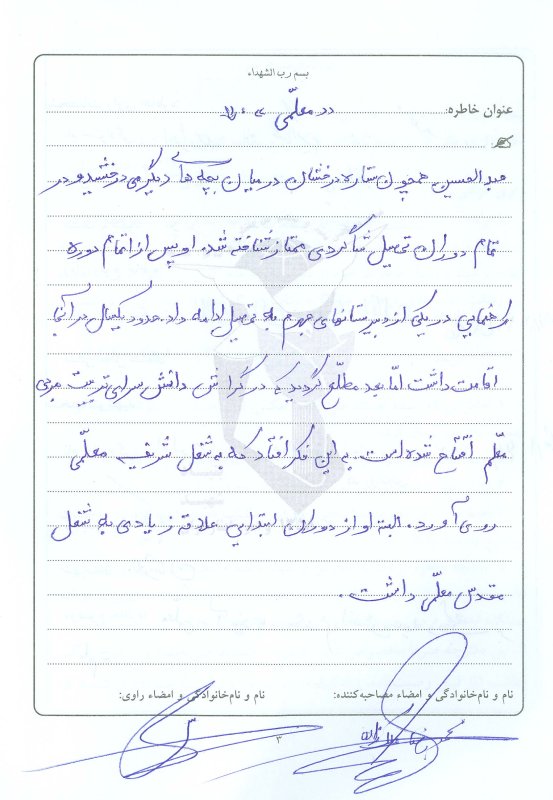 بسم رب الشهداء
عنوان خاطره: در معلّمی
عبدالحسین همچون ستاره درخشان در میان بچه های دیگر می درخشید و در
تمام دوران تحصیل شاگردی ممتاز شناخته شد. او پس از اتمام دوره
راهنمایی در یکی از دبیرستانهای جهرم به تحصیل ادامه داد. حدود یکسال در آنجا
اقامت داشت امّا بعد مطلّع گردید که در گراش دانش سرای تربیت مربی
معلّم افتتاح شده است. به این فکر افتاد که به شغل شریف معلّمی
روی آورد. البته او از دوران ابتدایی علاقه زیادی به شغل
مقدس معلّمی داشت.
نام و نام‌خانوادگی و امضاء مصاحبه‌کننده: نام و نام‌خانوادگی و امضاء راوی:
۳